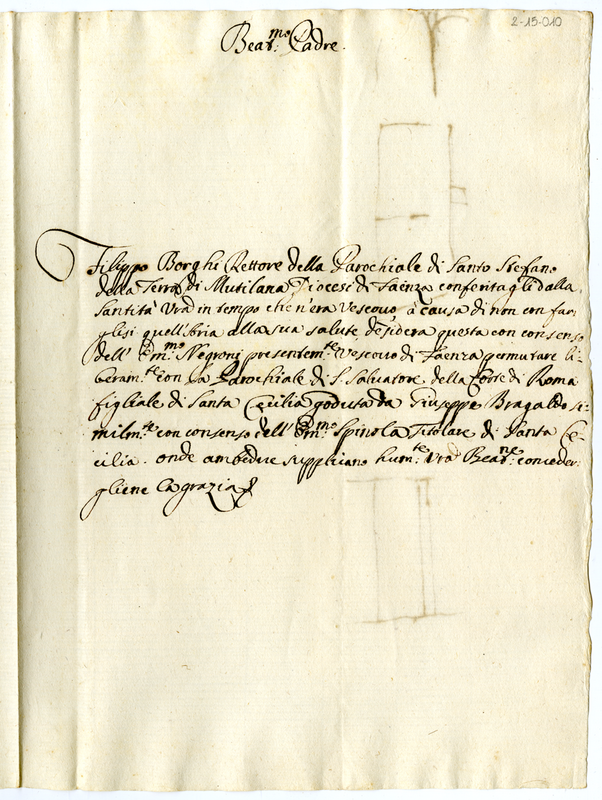 2-15-010
Beat.mo Padre.
Filippo Borghi Rettore della Parochiale di Santo Stefano
della Terra di Mutilana Diocesi di Faenza conferitagli dalla
Santità Vrã in tempo che n'era Vescovo à causa di non confar
glisi quell'Aria alla sua salute, desidera questa con consenso
dell' Em.mo Negroni presentem.te Vescovo di Faenza permutare li-
beram.te con la Parochiale di S. Salvatore della Corte di Roma
figliale di Santa Cecilia goduta da Giuseppe Bragaldo si-
milm.te con consenso dell' Em.mo Spinola Titolare di Santa Ce-
cilia. onde ambedue supplicano hum.te Vrã Beat.ne conceder-
gliene la grazia